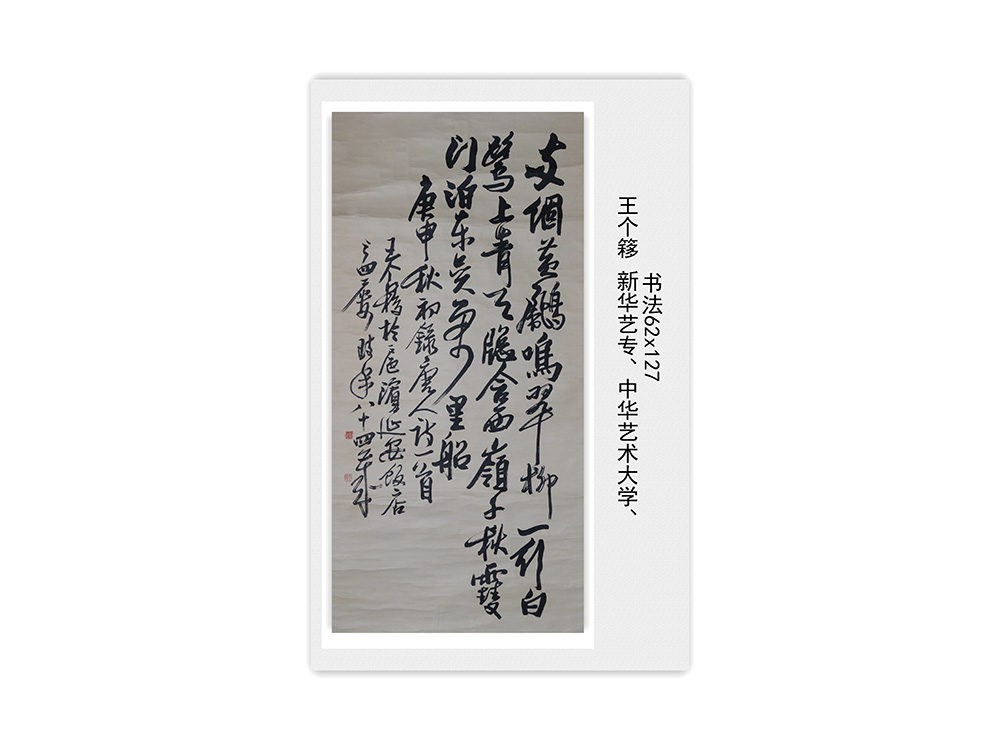 书法62x127
王个簃 新华艺专、中华艺术大学、
兩個黃鸝鳴翠柳一行白
鷺上青天牕含西嶺千秋雪
門泊東吳萬里船
庚申秋初錄唐人詩一首
王个簃於滬濱延安飯店
時年八十四